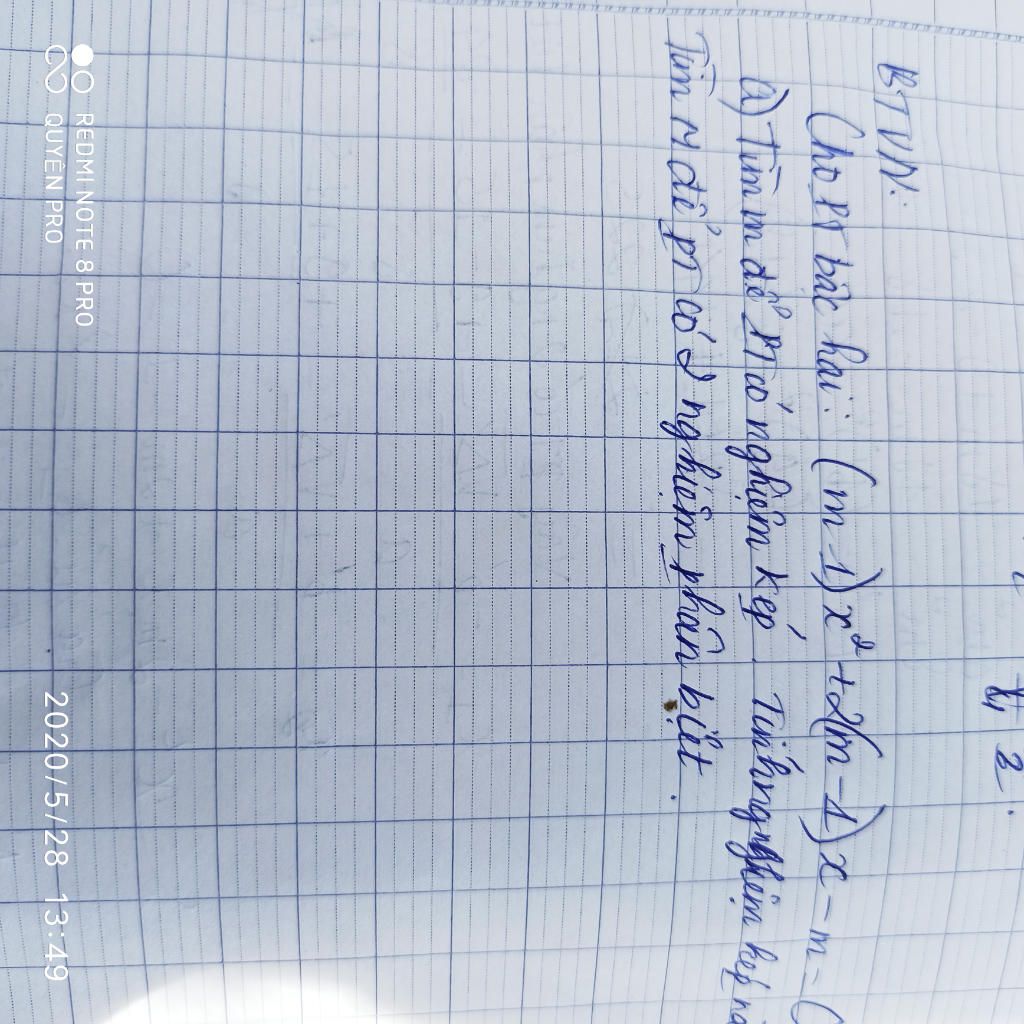 BTVN:
Cho PT bậc hai: (m-1)x² + 2(m-1)x - m =
a) Tìm m để PT có nghiệm kép. Tính nghiệm kép
Tìm m để PT có 2 nghiệm phân biệt.
REDMI NOTE 8 PRO
QUYÊN PRO
2020/5/28 13:49